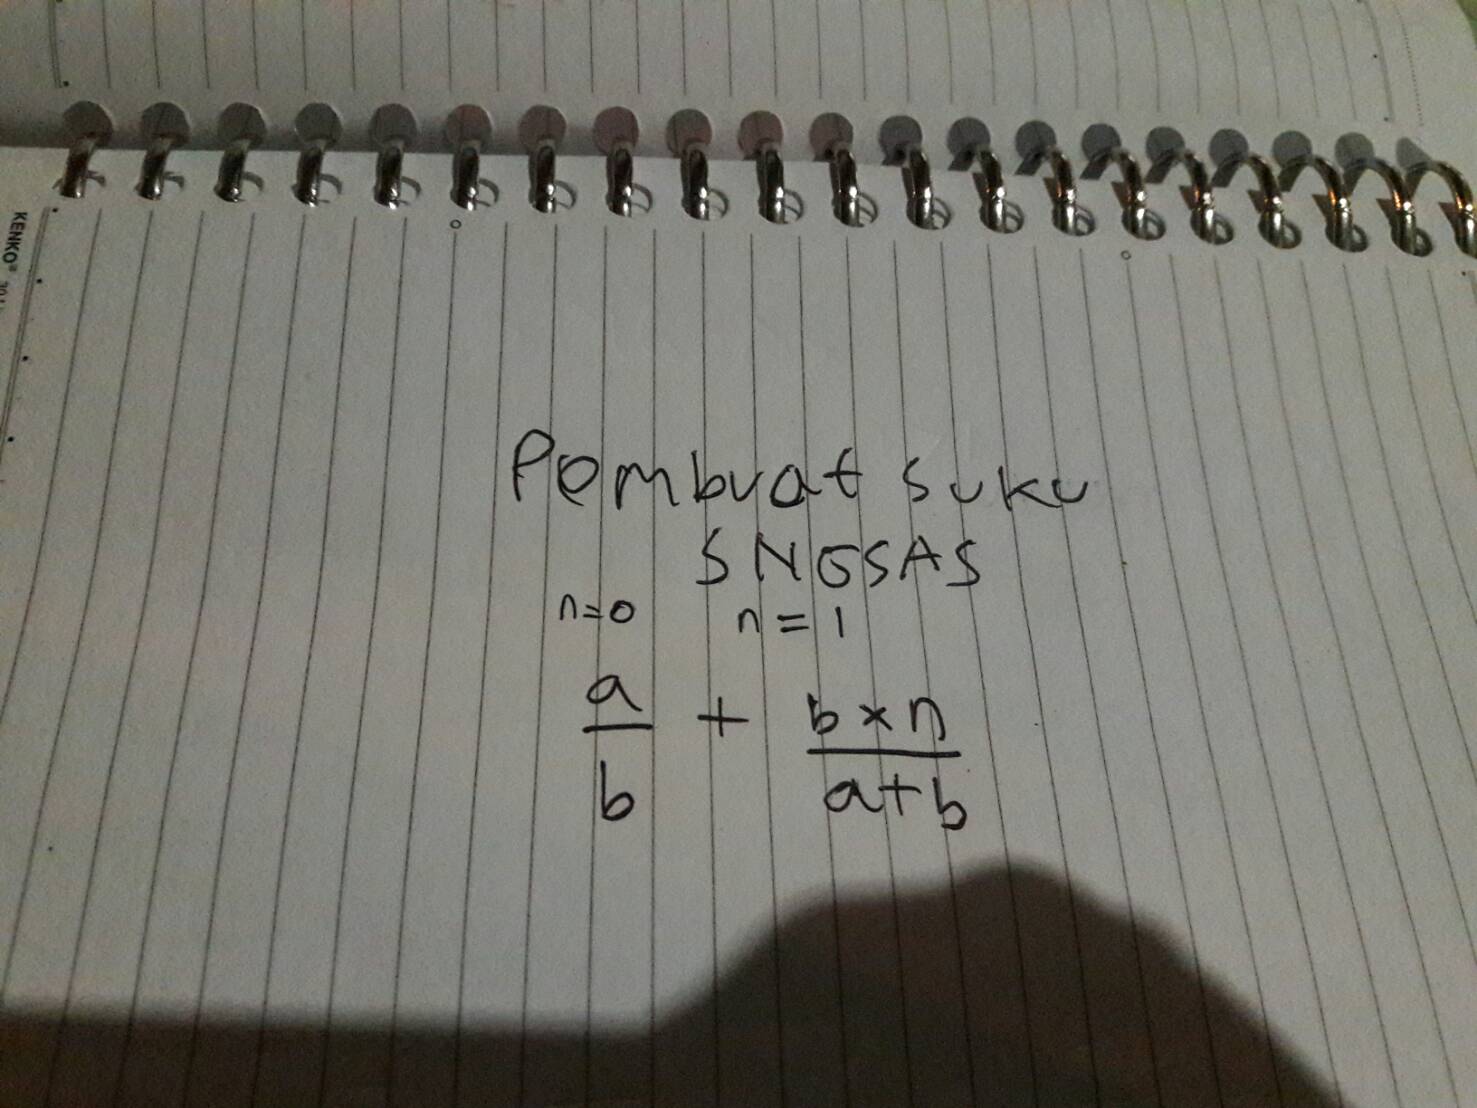 KENKO®
Pembuat suku
SNGSAS
n=0 n=1
a/b + b×n/a+b